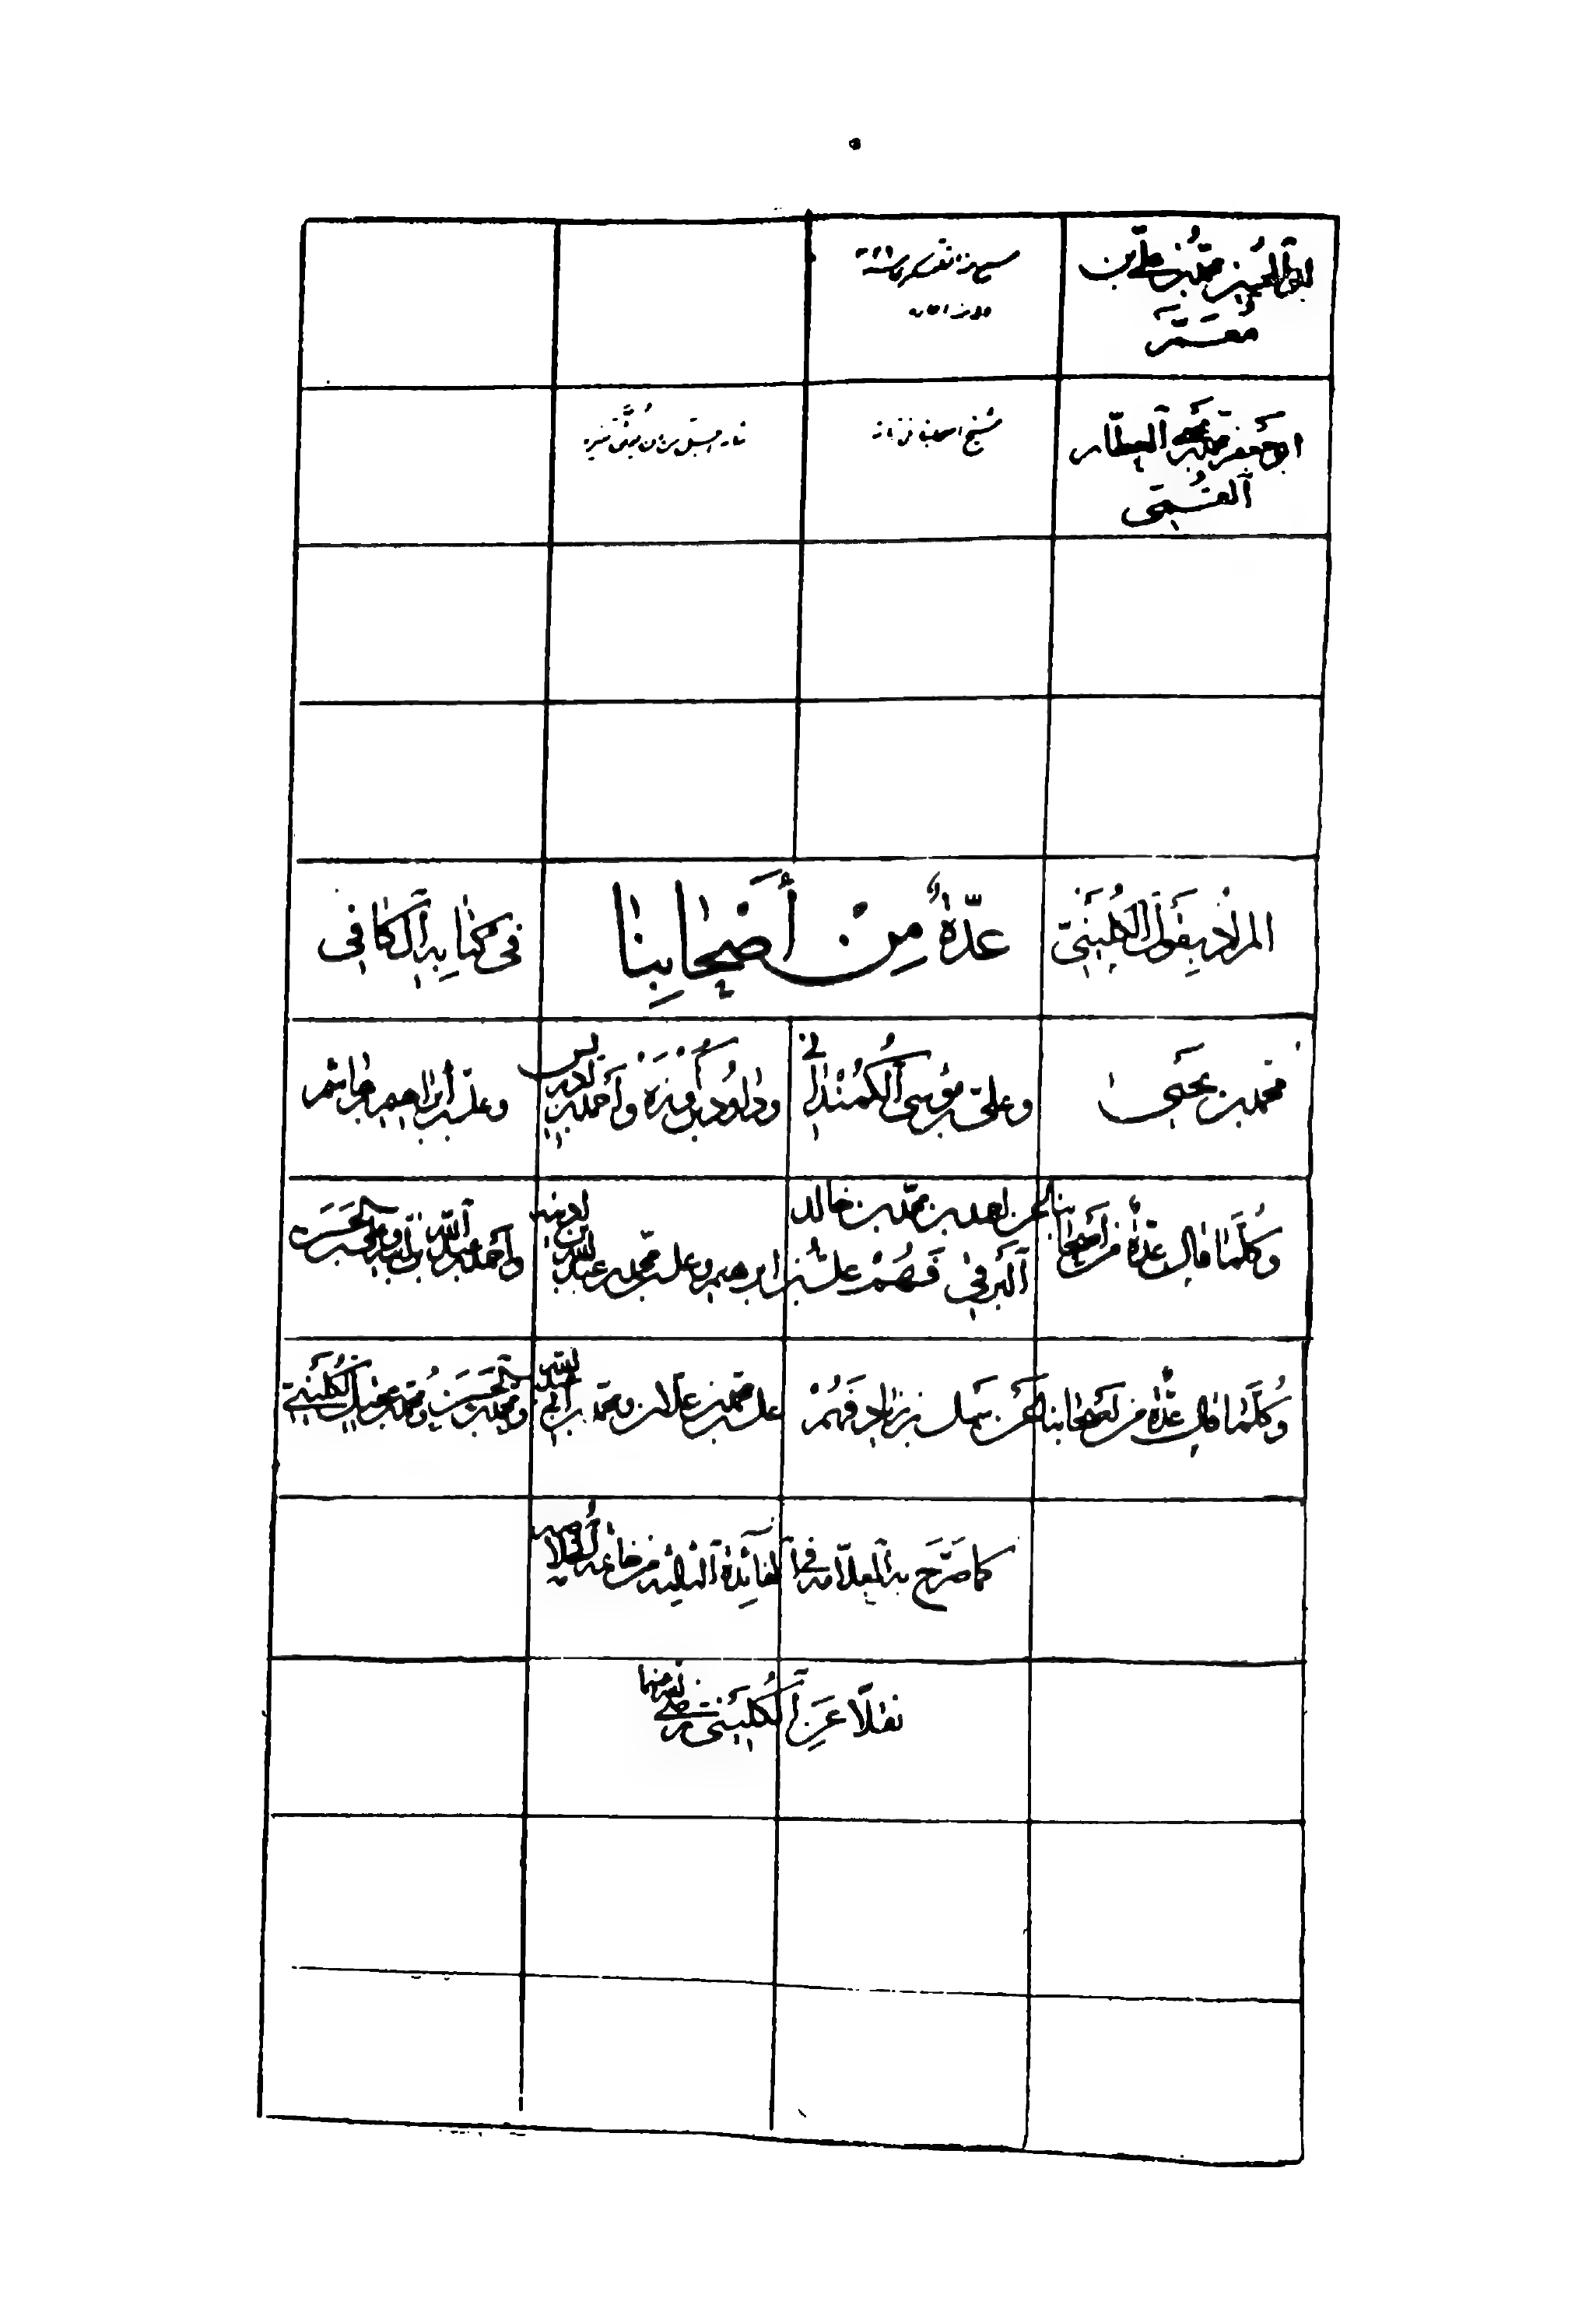 ابو الحسين محمد بن علي بن
معمر
ابو جعفر محمد بن يحيى العطار
القمي
شيخ اصحابنا في زمانه
المراد بقول الكليني
عدة من أصحابنا
في كتابه الكافي
محمد بن يحيى
وعلي بن موسى الكمنذاني
وداود بن كورة وأحمد بن إدريس
وعلي بن إبراهيم بن هاشم
وكلما قال عدة من أصحابنا عن احمد بن محمد بن خالد
البرقي فهم علي بن ابرهيم وعلي بن محمد بن عبد الله
وأحمد بن عبد الله وعلي بن الحسن
وكلما قال عدة من أصحابنا عن سهل بن زياد فهم
علي بن محمد بن علان ومحمد بن أبي عبد الله
ومحمد بن الحسن ومحمد بن عقيل الكليني
كما صرح به العلامة في الفائدة الثالثة من خاتمة الخلاصه
نقلا عن الكليني رضي الله عنهما